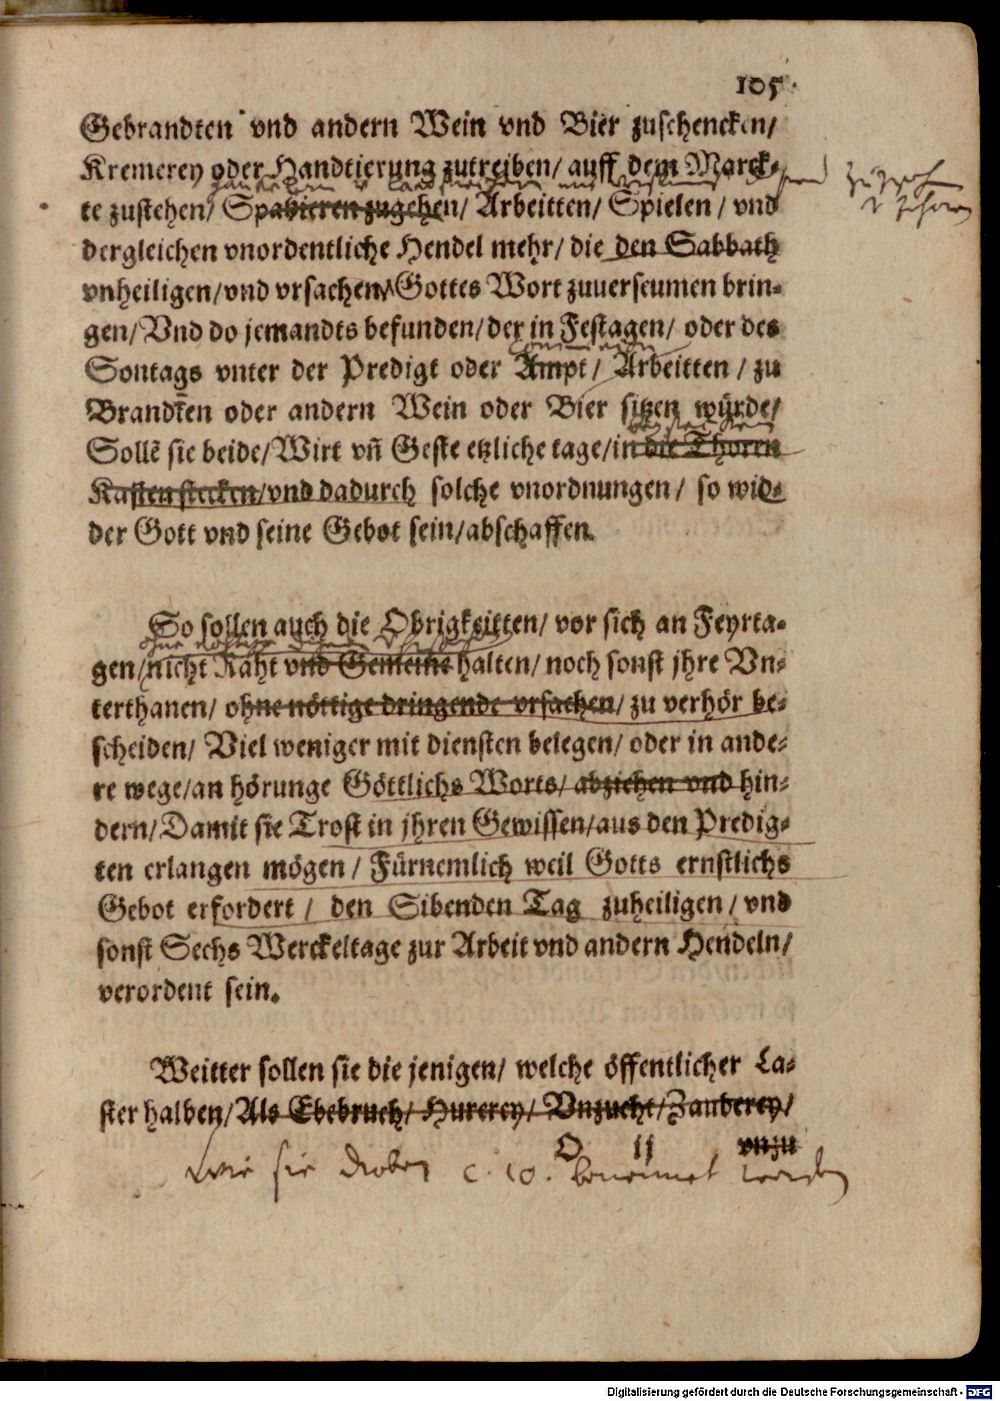 105.
Gebrandten vnd andern Wein vnd Bier zuschencken/
Kremerey oder Handtierung zutreiben/ auff dem Marck-
te zustehen/ Spatzieren zugehen/ Arbeitten/ Spielen / vnd
dergleichen vnordentliche Hendel mehr/ die den Sabbath
vnheiligen/ vnd vrsachen/ Gottes Wort zuuerseumen brin-
gen/ Vnd do jemandts befunden/ der in Festagen/ oder des
Sontags vnter der Predigt oder Ampt / Arbeitten / zu
Brandtēn oder andern Wein oder Bier sitzen würde/
Sollē sie beide/ Wirt vn̄ Geste etzliche tage/ in die Thoren
Kasten stecken/ vnd dadurch solche vnordnungen / so wid-
der Gott vnd seine Gebot sein/ abschaffen.
So sollen auch die Obrigkeitten/ vor sich an Feyrta-
gen/ nicht Raht vnd Gemeine halten/ noch sonst jhre Vn-
terthanen/ ohne nöttige dringende vrsachen/ zu verhör be-
scheiden/ Viel weniger mit diensten belegen/ oder in ande-
re wege/ an hörunge Göttlichs Worts/ abziehen vnd hin-
dern/ Damit sie Trost in jhren Gewissen/ aus den Predig-
ten erlangen mögen / Fürnemlich weil Gotts ernstlichs
Gebot erfordert / den Sibenden Tag zuheiligen / vnd
sonst Sechs Werckeltage zur Arbeit vnd andern Hendeln/
verordent sein.
Weitter sollen sie die jenigen/ welche öffentlicher La-
ster halben/ Als Ehebruch/ Hurerey/ Vnzucht/ Zauberey/
O ij vnzu
wie sie droben c. 10. benennet werden
Digitalisierung gefördert durch die Deutsche Forschungsgemeinschaft - DFG